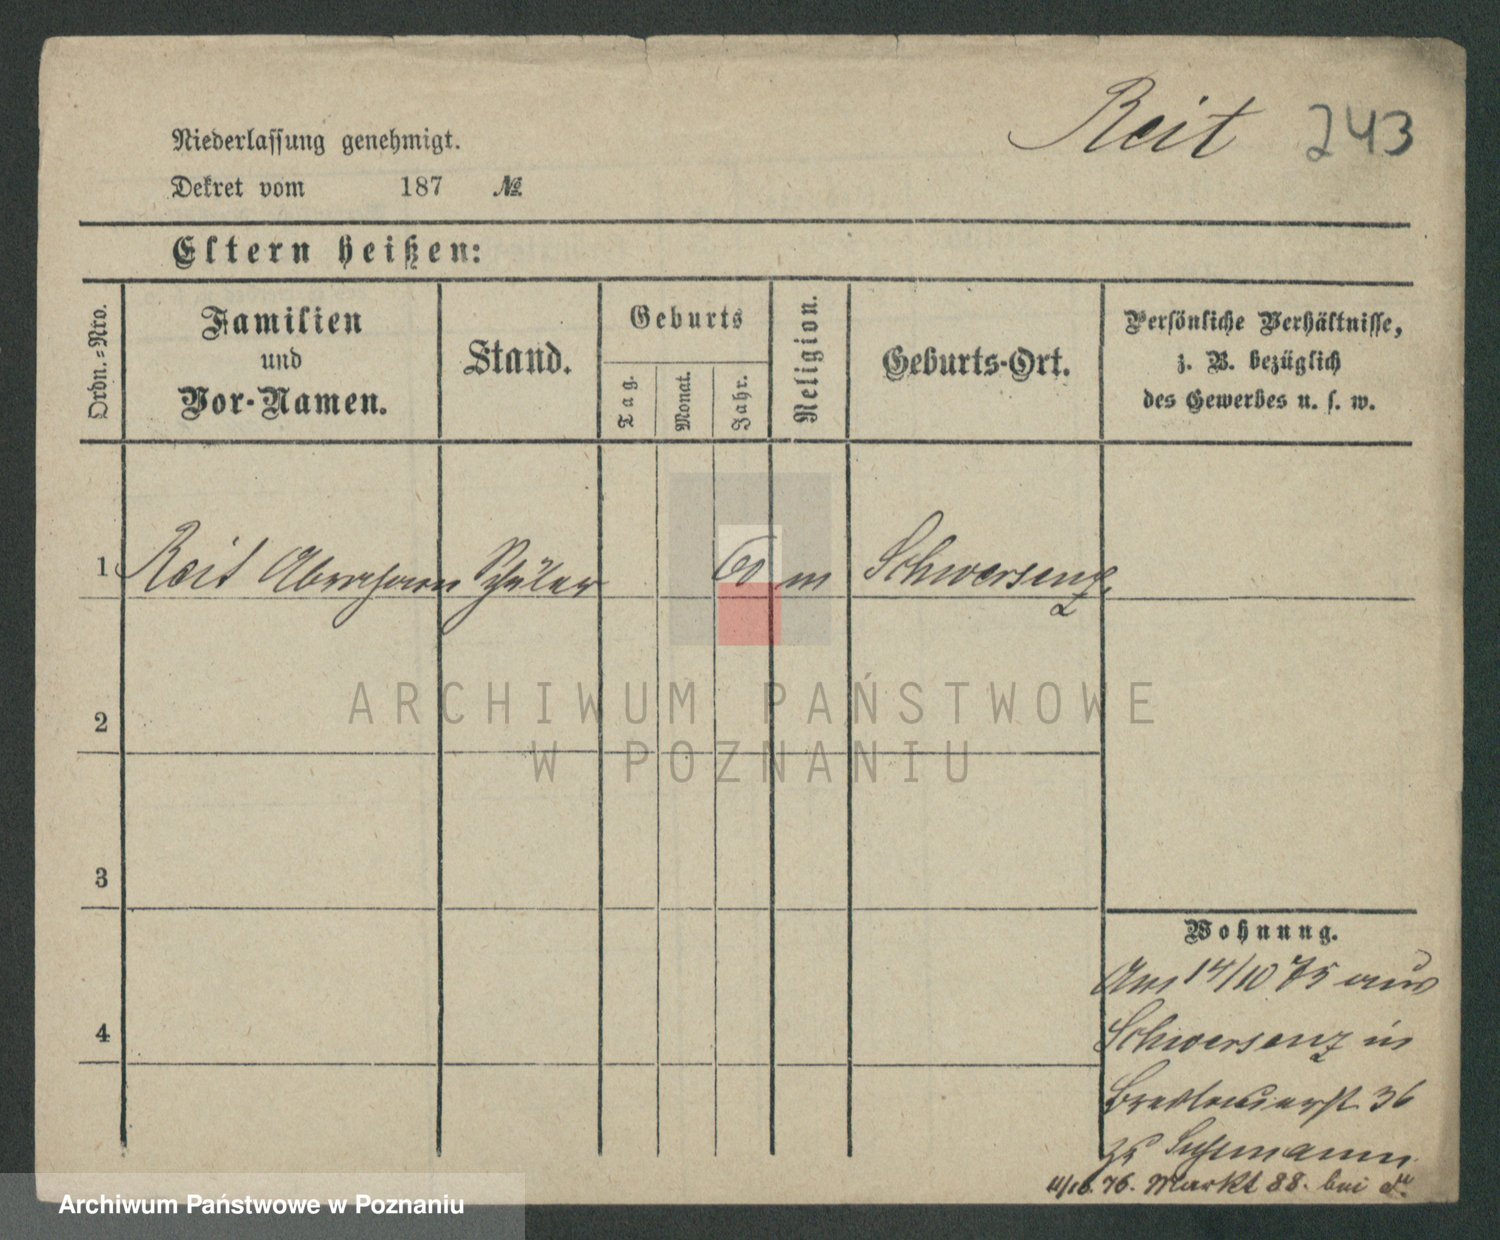 Reit 243
Niederlassung genehmigt.
Dekret vom 187 №
Eltern heißen:
Ordn.=Nro.
Familien
und
Vor-Namen.
Stand.
Geburts
Tag.
Monat.
Jahr.
Religion.
Geburts-Ort.
Persönliche Verhältnisse,
z. B. bezüglich
des Gewerbes u. s. w.
1 Reit Abraham Schüler 60 m Schwersenz
2
3
4
Wohnung.
Am 14/10 75 aus
Schwersenz in
Breslauerst. 36
zu
76. Markt 88. bei
ARCHIWUM PAŃSTWOWE
W POZNANIU
Archiwum Państwowe w Poznaniu